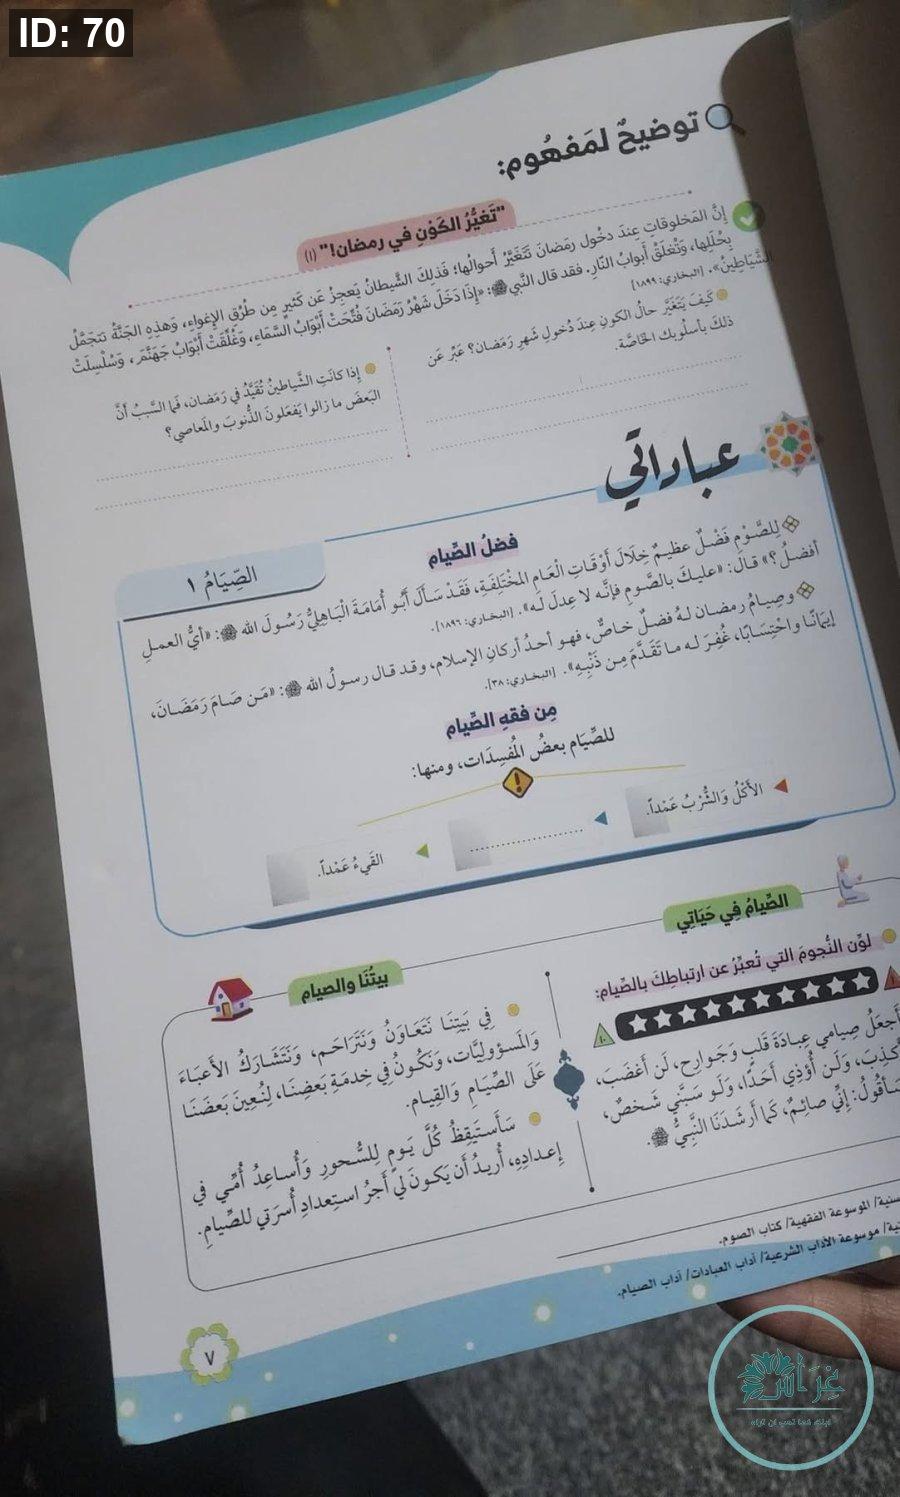 ID: 70
توضيحٌ لمَفهُوم:
"تَغيُّرُ الكَوْنِ في رمضان!" (١)
إنَّ المَخلوقاتِ عِندَ دخُول رمَضانَ تَتَغَيَّرُ أحوالُها؛ فَذلِكَ الشَّيطانُ يَعجِزُ عَن كَثيرٍ مِن طُرُقِ الإغواءِ، وَهذِهِ الجَنَّةُ تتَجَمَّلُ
بِحُلَلِها، وَتُغلَقُ أبوابُ النّارِ. فقد قال النَّبي ﷺ: «إِذَا دَخَلَ شَهْرُ رَمَضَانَ فُتِّحَتْ أَبْوَابُ السَّمَاءِ، وَغُلِّقَتْ أَبْوَابُ جَهَنَّمَ، وَسُلْسِلَتْ
الشَّيَاطِينُ». [البخاري: ١٨٩٩]
كَيفَ يَتَغَيَّر حالُ الكونِ عِندَ دُخولِ شَهرِ رَمَضان؟ عَبِّر عَن
ذلكَ بأسلُوبك الخَاصَّة.
إذا كانَتِ الشَّياطينُ تُقَيَّدُ في رَمَضان، فَما السَّببُ أنَّ
البَعضَ ما زالوا يَفعَلونَ الذُّنوبَ والمَعاصي؟
عباداتي
الصِّيَامُ ١
فضلُ الصِّيام
لِلصَّوْمِ فَضْلٌ عظيمٌ خِلَالَ أَوْقَاتِ الْعَامِ المخْتَلِفَةِ، فَقَدْ سَأَلَ أَبُو أُمَامَةَ الْبَاهِلِيُّ رَسُولَ الله ﷺ: «أيُّ العملِ
أفضلُ؟» قالَ: «عليكَ بالصَّومِ فإنَّه لا عِدلَ لَه». [البخاري: ١٨٩٦].
وصِيامُ رمضان لهُ فضلٌ خاصٌّ، فهو أحدُ أركانِ الإسلام، وقد قال رسولُ الله ﷺ: «مَن صَامَ رَمَضَانَ،
إيمَانًا واحْتِسَابًا، غُفِرَ له ما تَقَدَّمَ مِن ذَنْبِهِ». [البخاري: ٣٨].
مِن فقهِ الصِّيام
للصِّيَام بعضُ المُفسِدَات، ومنها:
الأَكْلُ وَالشُّرْبُ عَمْداً.
....................
القَيءُ عَمْداً.
الصِّيامُ فِي حَيَاتِي
لوِّن النُّجومَ التي تُعبِّرُ عن ارتباطِكَ بالصِّيام:
١
١٠
أجعَلُ صِيامي عِبادَةَ قَلبٍ وَجَوارِح، لَن أغضَبَ،
أكذِبَ، وَلَن أُؤذِي أحَدًا، وَلَو سَبَّني شَخصٌ،
سَأقُولُ: إنِّي صائِمٌ، كَما أرشَدَنَا النَّبِيُّ ﷺ.
بيتُنَا والصيام
فِي بَيتِنَا نَتَعَاوَنُ وَنَتَرَاحَم، وَنَتَشَارَكُ الأَعبَاءَ
وَالمَسؤولِيَّات، وَنَكُونُ فِي خِدمَةِ بَعضِنَا، لِنُعِينَ بَعضَنَا
عَلَى الصِّيَامِ وَالقِيام.
سَأَستَيقِظُ كُلَّ يَومٍ لِلسُّحورِ وَأُساعِدُ أُمِّي في
إعدادِهِ، أُريدُ أن يَكونَ لي أَجرُ استِعدادِ أُسرَتي للصِّيامِ.
الموسوعة الفقهية/ كتاب الصوم.
موسوعة الآداب الشرعية/ آداب العبادات/ آداب الصيام.
٧
غِرَاس